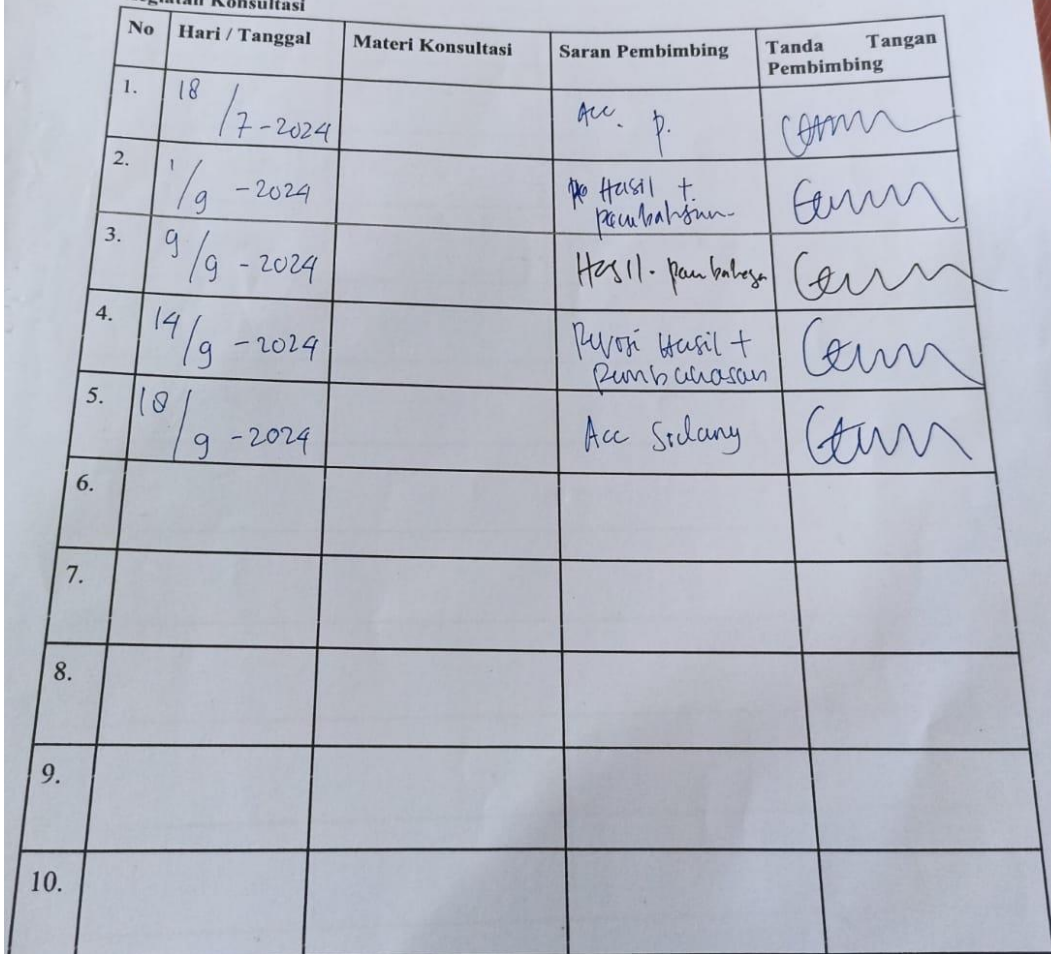 Kegiatan Konsultasi
No Hari / Tanggal Materi Konsultasi Saran Pembimbing Tanda Tangan Pembimbing
1. 18/7-2024 Acc. p.
2. 1/9 - 2024 Hasil + pembahasan
3. 9/9 - 2024 Hasil. pembahasa
4. 14/9 - 2024 Revisi Hasil + Pembahasan
5. 18/9 - 2024 Acc Sidang
6.
7.
8.
9.
10.